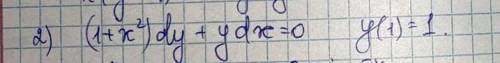 2) (1+x²)dy + ydx=0 y(1)=1.